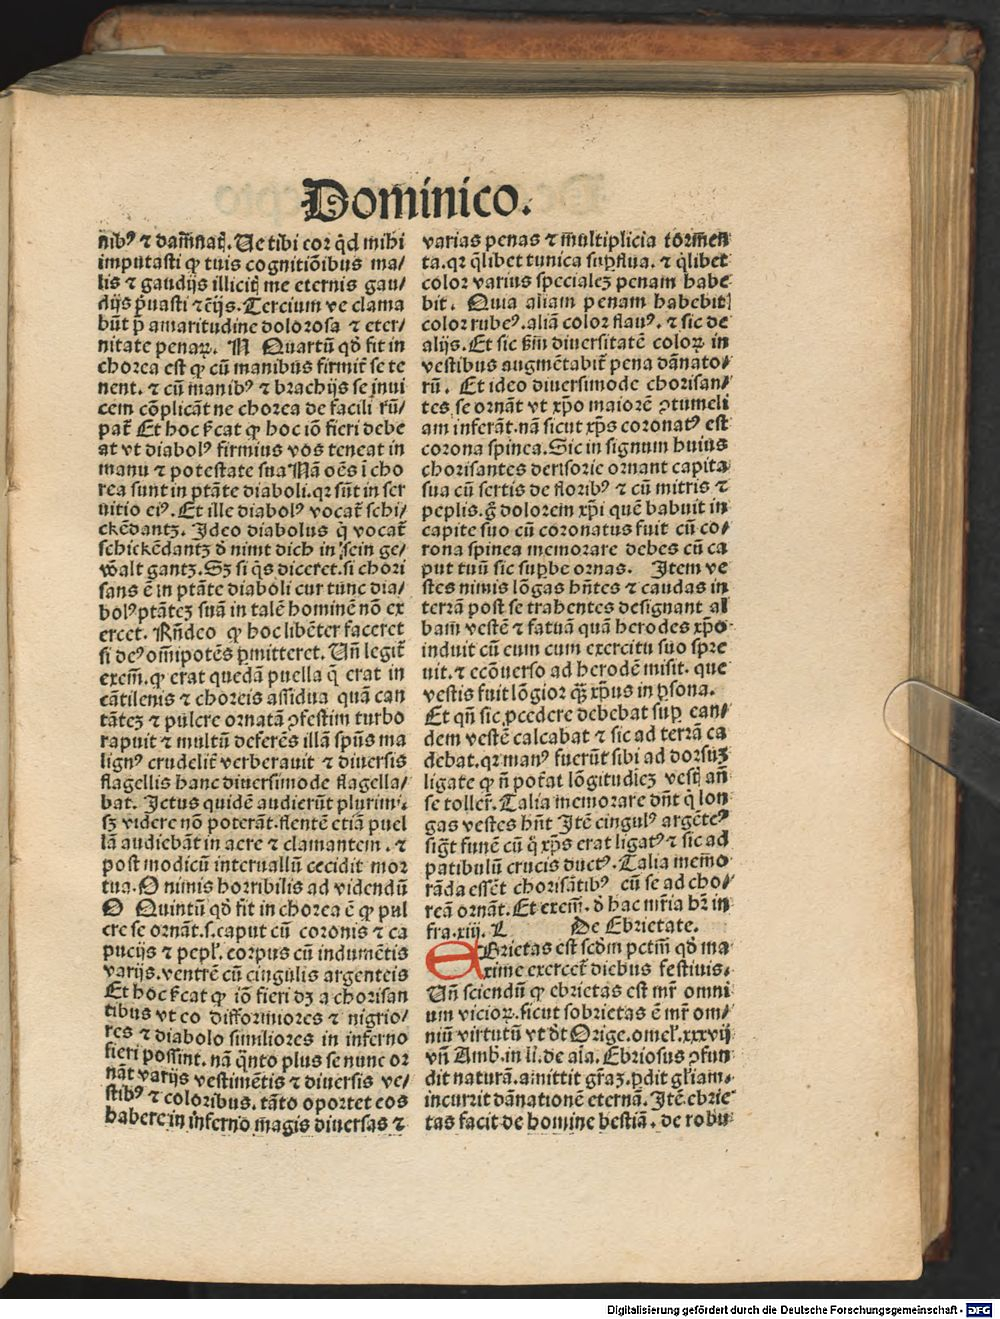 Dominico.
nibꝰ ⁊ damͣnaqꝫ. Ue tibi cor qd̛ mihi
imputasti ꝙ tuis cognitiõibus ma/
lis ⁊ gaudijs illicitꝭ me eternis gau/
dijs p̛uasti ⁊c̃ijs. Tercium ve clama
bũt p̃ amaritudine dolorosa ⁊ eter/
nitate penaꝝ. N Quartũ qd̛ fit in
chorea est ꝙ cũ manibus firmit̃ se te
nent. ⁊ cũ manibꝰ ⁊ brachijs se inui
cem cõplicãt ne chorea de facili rũ/
pat̃ Et hoc f̃cat ꝙ hoc iõ fieri debe
at vt diabolꝰ firmius vos teneat in
manu ⁊ potestate sua Nã oẽs ĩ cho
rea sunt in ptãte diaboli. qꝛ sũt in ser
uitio eiꝰ. Et ille diabolꝰ vocat̃ schi/
ckẽdantz. Ideo diabolus q̃ vocat̃
schickẽdantz d̛ nimt dich in sein ge/
walt gantz. Sꝫ si q̃s diceret. si chori
sans ẽ in ptãte diaboli cur tunc dia/
bolꝰ ptãteꝫ suã in talẽ hominẽ nõ ex
ercet. Rñdeo ꝙ hoc libẽter faceret
si deꝰ om̃ipotẽs ꝑmitteret. Uñ legit̃
exem̃. ꝙ erat quedã puella q̃ erat in
cãtilenis ⁊ choreis assidua quã can
tãteꝫ ⁊ pulcre ornatã ꝯfestim turbo
rapuit ⁊ multũ deferẽs illã spũs ma
lignꝰ crudelit̃ verberauit ⁊ diuersis
flagellis hanc diuersimode flagella/
bat. Ictus quidẽ audierũt plurimi.
sꝫ videre nõ poterãt. flentẽ etiã puel
lã audiebãt in aere ⁊ clamantem. ⁊
post modicũ interuallũ cecidit mor
tua. O nimis horribilis ad videndũ
O Quintũ qd̛ fit in chorea ẽ ꝙ pul
cre se ornãt. s. caput cũ coronis ⁊ ca
pucijs ⁊ pepl̛. corpus cũ indumẽtis
varijs. ventrẽ cũ cingulis argenteis
Et hoc f̃cat ꝙ iõ fieri dꝫ a chorisan
tibus vt eo difformiores ⁊ nigrio/
res ⁊ diabolo similiores in inferno
fieri possint. nã q̃nto plus se nunc or
nãt varijs vestimẽtis ⁊ diuersis ve/
stibꝰ ⁊ coloribus. tãto oportet eos
habere in inferno magis diuersas ⁊
varias penas ⁊ m̃ultiplicia torm̃en
ta. qꝛ q̃libet tunica suꝑflua. ⁊ q̃libet
color varius specialeꝫ penam habe
bit. Quia aliam penam habebit
color rubeꝰ. aliã color flauꝰ. ⁊ sic de
alijs. Et sic f̃m diuersitatẽ coloꝝ in
vestibus augmẽtabit̃ pena dãnato/
rũ. Et ideo diuersimode chorisan/
tes se ornãt vt xp̃o maiorẽ ꝯtumeli
am inferãt. nã sicut xp̃s coronatꝰ est
corona spinea. Sic in signum huius
chorisantes derisorie ornant capita
sua cũ sertis de floribꝰ ⁊ cũ mitris ⁊
peplis. g̃ dolorem xp̃i quẽ habuit in
capite suo cũ coronatus fuit cũ co/
rona spinea memorare debes cũ ca
put tuũ sic suꝑbe ornas. Item ve
stes nimis lõgas hñtes ⁊ caudas in
terrã post se trahentes designant al
bam̃ vestẽ ⁊ fatuã quã herodes xp̃o
induit cũ eum cum exercitu suo spre
uit. ⁊ ecõuerso ad herodẽ misit. que
vestis fuit lõgior qͣꝫ xp̃us in ꝑsona.
Et qñ sic ꝓcedere debebat suꝑ ean/
dem vestẽ calcabat ⁊ sic ad terrã ca
debat. qꝛ manꝰ fuerũt sibi ad dorsuꝫ
ligate ꝙ ñ pot̃at lõgitudieꝫ vesꝭ añ
se toller̃. Talia memorare dñt q̃ lon
gas vestes hñt Itẽ cingulꝰ argẽteꝰ
sigt̃ funẽ cũ q̃ xp̃s erat ligatꝰ ⁊ sic ad
patibulũ crucis ductꝰ. Talia mem̃o
rãda essẽt chorisãtibꝰ cũ se ad cho/
reã ornãt. Et exem̃. d̛ hac mr̃ia hr̃ in
fra. xiij. L De Ebrietate.
EBrietas est scd̛m pctm̃ qd̛ ma
xime exercet̃ diebus festiuis.
Uñ sciendũ ꝙ ebrietas est mr̃ omni
um vicioꝝ. sicut sobrietas ẽ mr̃ om/
niũ virtutũ vt d̛t Orige. omel̛. xxxvij
vñ Amb̛. in li. de aĩa. Ebriosus ꝯfun
dit naturã. amittit gr̃az. ꝑdit gl̛iam.
incurrit dãnationẽ eternã. Itẽ ebrie
tas facit de homine bestiã. de robu
Digitalisierung gefördert durch die Deutsche Forschungsgemeinschaft - DFG